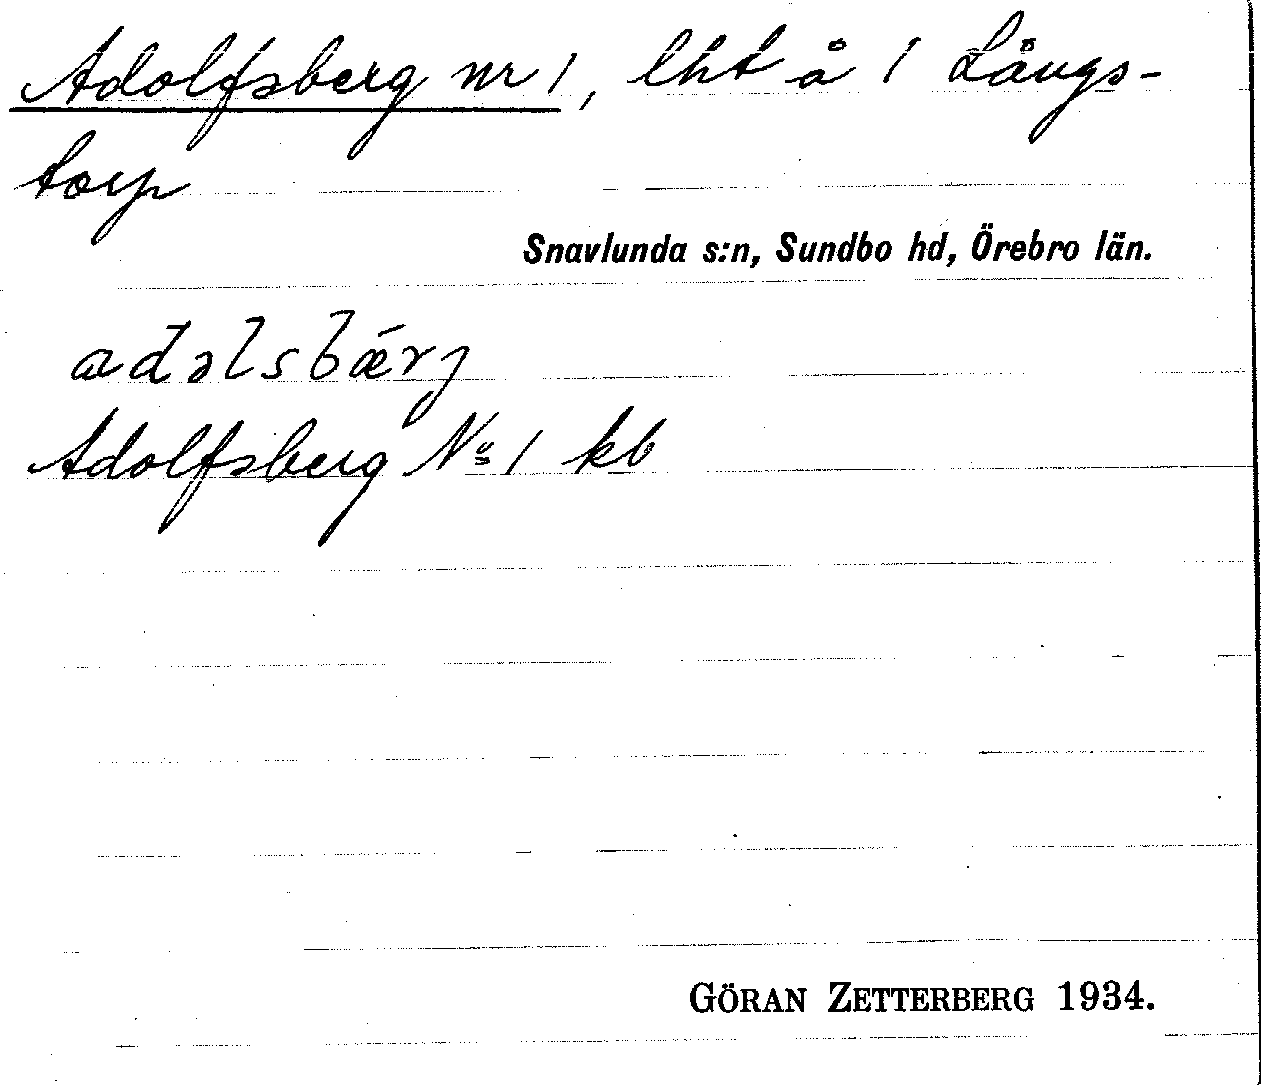 Adolfsberg nr 1, lht å 1 Långs-
torp
Snavlunda s:n, Sundbo hd, Örebro län.
adəlsbǽrj
Adolfsberg No 1 kb
GÖRAN ZETTERBERG 1934.